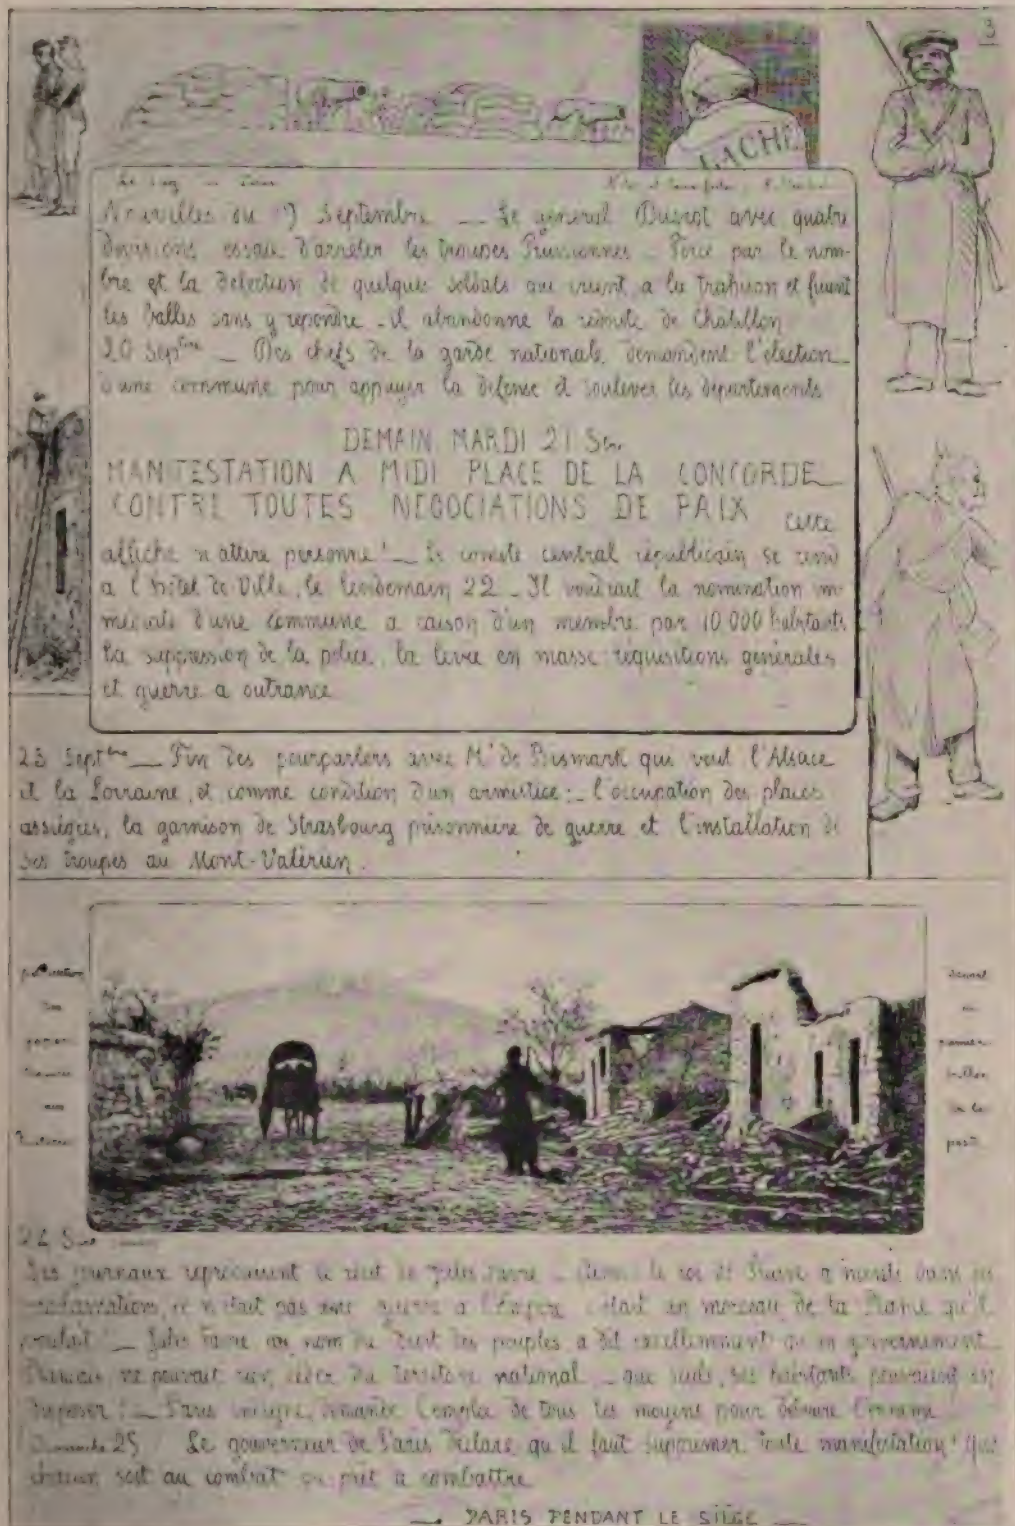 3
LACHE
Nouvelles du 19 Septembre — Le général Ducrot avec quatre
divisions essaie d'arrêter les troupes Prussiennes — Forcé par le nom-
bre et la défection de quelques soldats qui crient à la trahison et fuient
les balles sans y répondre — il abandonne la redoute de Chatillon
20 Septbre — Des chefs de la garde nationale, demandent l'élection
d'une commune pour appuyer la défense et soulever les départements
DEMAIN MARDI 21 S
MANIFESTATION A MIDI PLACE DE LA CONCORDE
CONTRE TOUTES NEGOCIATIONS DE PAIX Cette
affiche n'attire personne! — Le comité central républicain se rend
a l'hôtel de Ville, le lendemain 22 — Il voudrait la nomination im-
médiate d'une commune a raison d'un membre par 10 000 habitants
la suppression de la police, la levée en masse, réquisitions générales
et guerre a outrance
23 Septbre — Fin des pourparlers avec Mr de Bismark qui veut l'Alsace
et la Lorraine, et comme condition d'un armistice: — l'occupation des places
assiégées, la garnison de Strasbourg prisonnière de guerre et l'installation de
ses troupes au Mont-Valérien.
24 S
Les journaux reproduisent le récit de Jules Favre — le roi de Prusse a menti dans ses
proclamations, ce n'était pas une guerre a l'Empire c'était un morceau de la France qu'il
voulait! — Jules Favre au nom du droit des peuples a dit excellemment qu'un gouvernement
Français ne pouvait rien céder du territoire national — que seuls, ses habitants pouvaient en
disposer! — Paris indigné, demande l'emploi de tous les moyens pour détruire l'ennemi
Dimanche 25 Le gouverneur de Paris déclare qu'il faut supprimer toute manifestation! Que
chacun soit au combat ou prêt a combattre
— PARIS PENDANT LE SIÈGE —